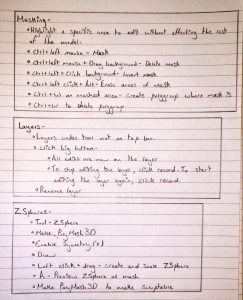 Masking -
• Highlight a specific area to edit without effecting the rest
of the model.
• Ctrl+left mouse - Mask
• Ctrl+left mouse + Drag background - Delete mask
• Ctrl+left+Click background - Invert mask
• Ctrl+left click + Alt - Erase areas of mask
• Ctrl+W on masked area - Create polygroup where mask is
• Ctrl+W to delete polygroup
Layers -
• Layers under tool not on top bar
• Click big button -
• All edits are now on the layer
• To stop editing the layer, click record. To start
editing the layer again, click record
• Rename layer
ZSpheres -
• Tool - ZSphere
• Make PolyMesh3D
• Enable Symmetry
• Draw
• Left click + drag - create and scale ZSphere
• A - Preview ZSphere as mesh
• Make PolyMesh3D to make sculptable